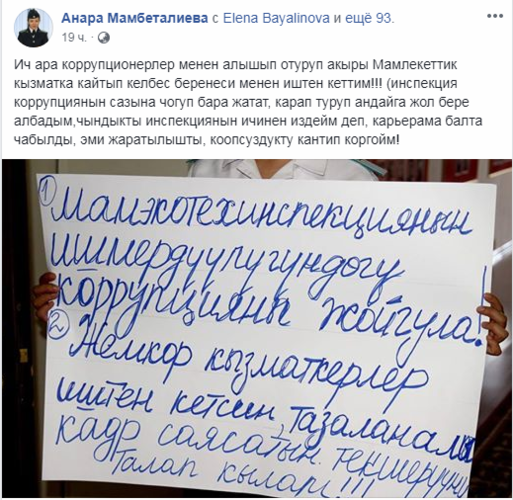 Анара Мамбеталиева с Elena Bayalinova и ещё 93.
19 ч. ·
Ич ара коррупционерлер менен алышып отуруп акыры Мамлекеттик
кызматка кайтып келбес беренеси менен иштен кеттим!!! (инспекция
коррупциянын сазына чогуп бара жатат, карап туруп андайга жол бере
албадым,чындыкты инспекциянын ичинен издейм деп, карьерама балта
чабылды, эми жаратылышты, коопсуздукту кантип коргойм!
1 Мамэкотехинспекциянын
ишмердүүлүгүндөгү
коррупцияны жойгула!
2 Жемкор кызматкерлер
иштен кетсин, тазаланалы
кадр саясатын текшерүүнү
Талап кылам!!!